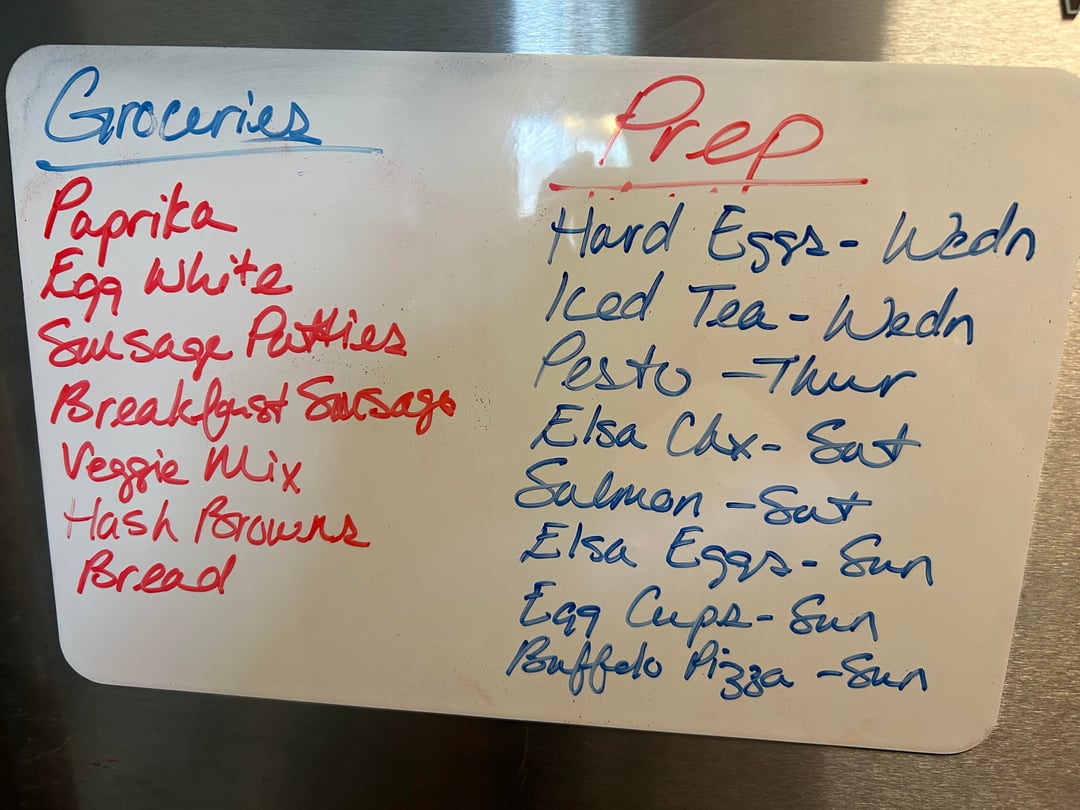 Groceries
Paprika
Egg White
Sausage Patties
Breakfast Sausage
Veggie Mix
Hash Browns
Bread
Prep
Hard Eggs - Wedn
Iced Tea - Wedn
Pesto - Thur
Elsa Chx - Sat
Salmon - Sat
Elsa Eggs - Sun
Egg Cups - Sun
Buffalo Pizza - Sun